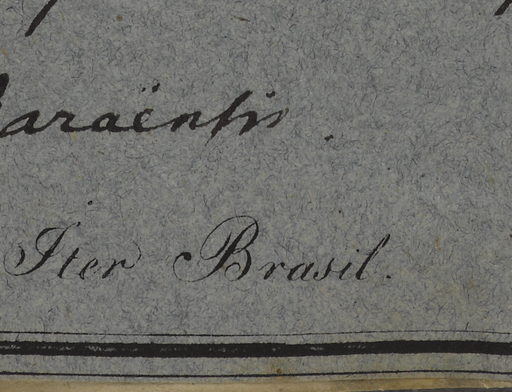 Paraënsis.
Iter Brasil.